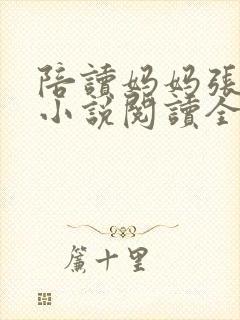 陪讀妈妈張
小說閱讀全
簾十里